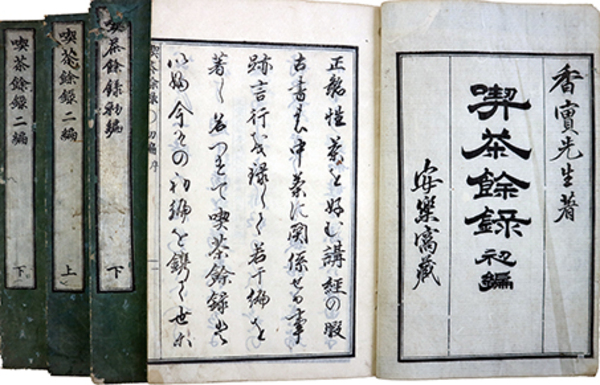 香寶先生著
喫茶餘録 初編
安樂窩藏
性茶を好む講經の暇
古書 中茶に関係せる事
跡言行を録して若干編を
著し名つけて喫茶餘録と
今その初編を 世に
喫茶餘録 初編 序
喫茶餘録初編 下
喫茶餘録二編 上
喫茶餘録二編 下